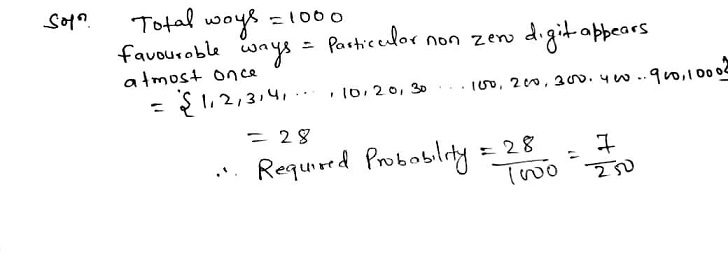 Solⁿ. Total ways = 1000
favourable ways = Particular non zero digit appears
atmost once
= {1, 2, 3, 4, ... , 10, 20, 30 ... 100, 200, 300. 400 .. 900, 1000}
= 28
∴ Required Probability = 28/1000 = 7/250